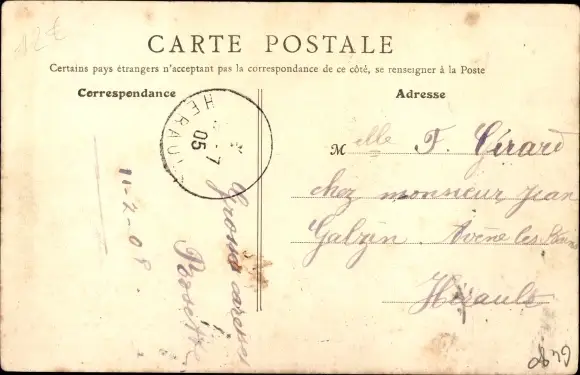 12€
CARTE POSTALE
Certains pays étrangers n'acceptant pas la correspondance de ce côté, se renseigner à la Poste
Correspondance
Adresse
HERAULT
7
05
11-2-08
Grosses
Mlle F. Gérard
chez monsieur Jean
Galzin. Avène les Bains
Hérault